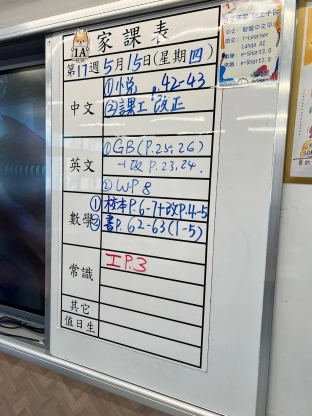 1A 家課表
第17週5月15日(星期四)
中文
①小說 p.42-43
②課工 改正
英文
①GB(P.25,26)
P.23,24.
②WP8
數學
①校本P.6-7+改P.4-5
②書P.62-63(1-5)
常識
工P.3
其它
值日生